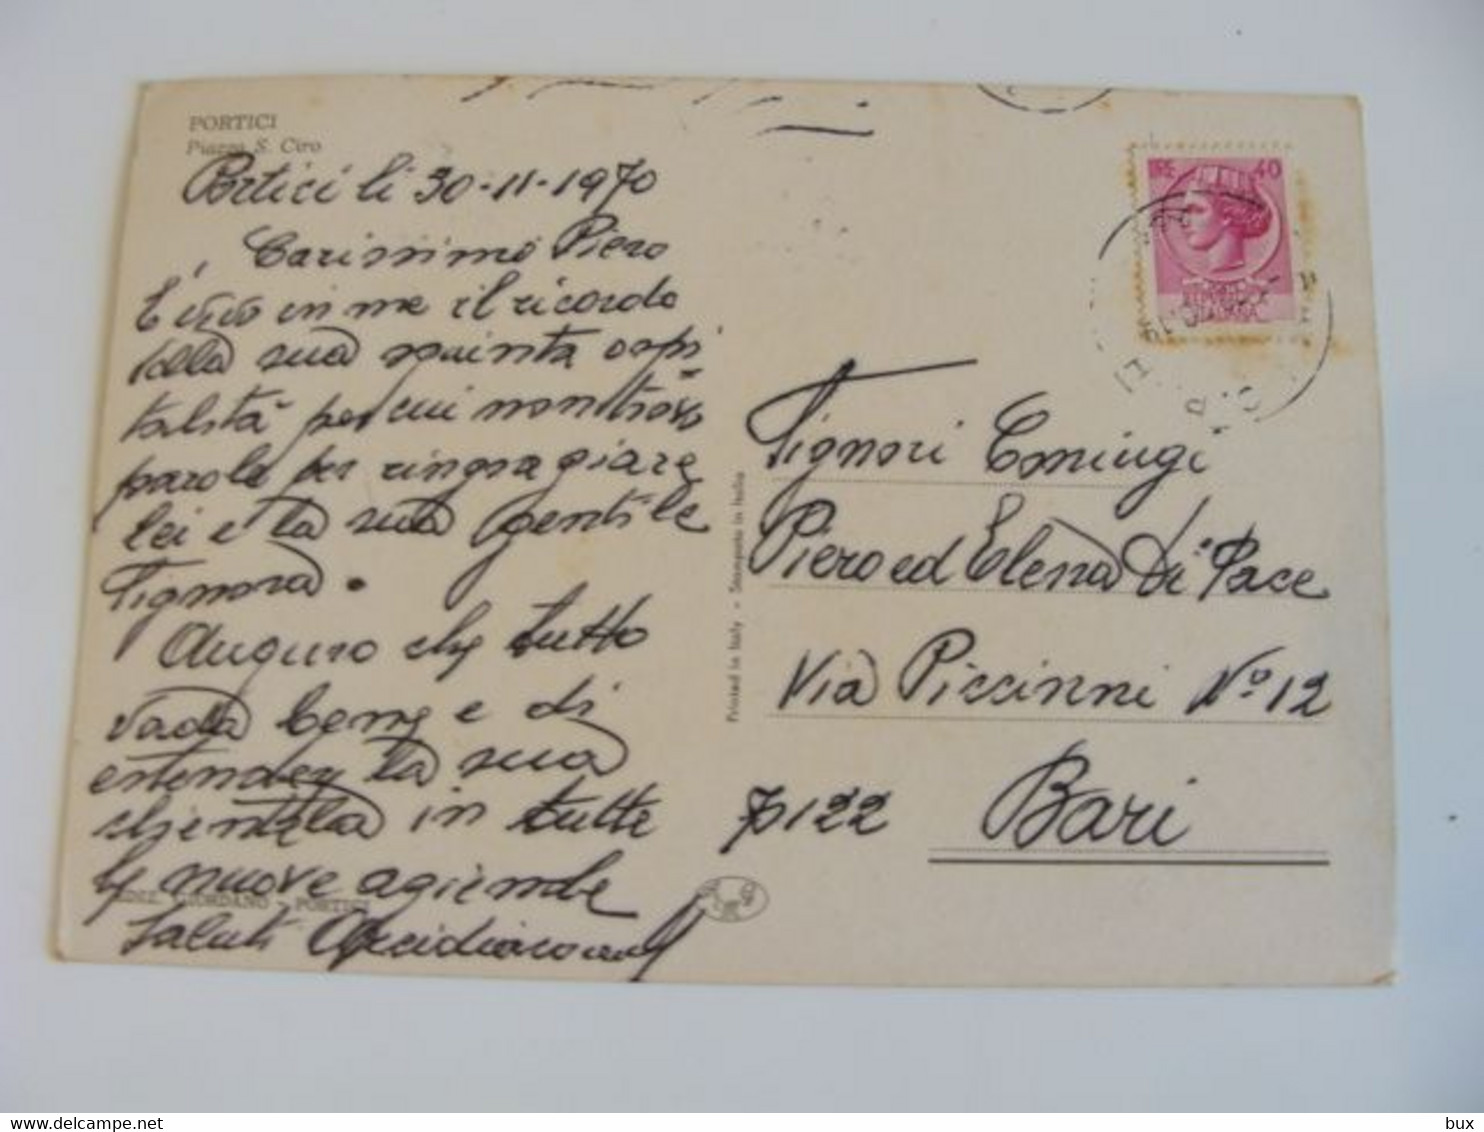 PORTICI
Piazza S. Ciro
Portici li 30-11-1970
Carissimo Piero
E' vivo in me il ricordo
della sua squisita ospi
talità per cui non trovo
parole per ringraziare
lei e la sua gentile
Signora.
Auguro che tutto
vada bene e di
estendere la sua
clientela in tutte
le nuove aziende
Saluti
EDIZ. GIORDANO - PORTICI
Printed in Italy - Stampato in Italia
LIRE 40
REPVBBLICA
ITALIANA
Signori Coniugi
Piero ed Elena Di Pace
Via Piccinni N° 12
70122 Bari
delcampe.net
bux